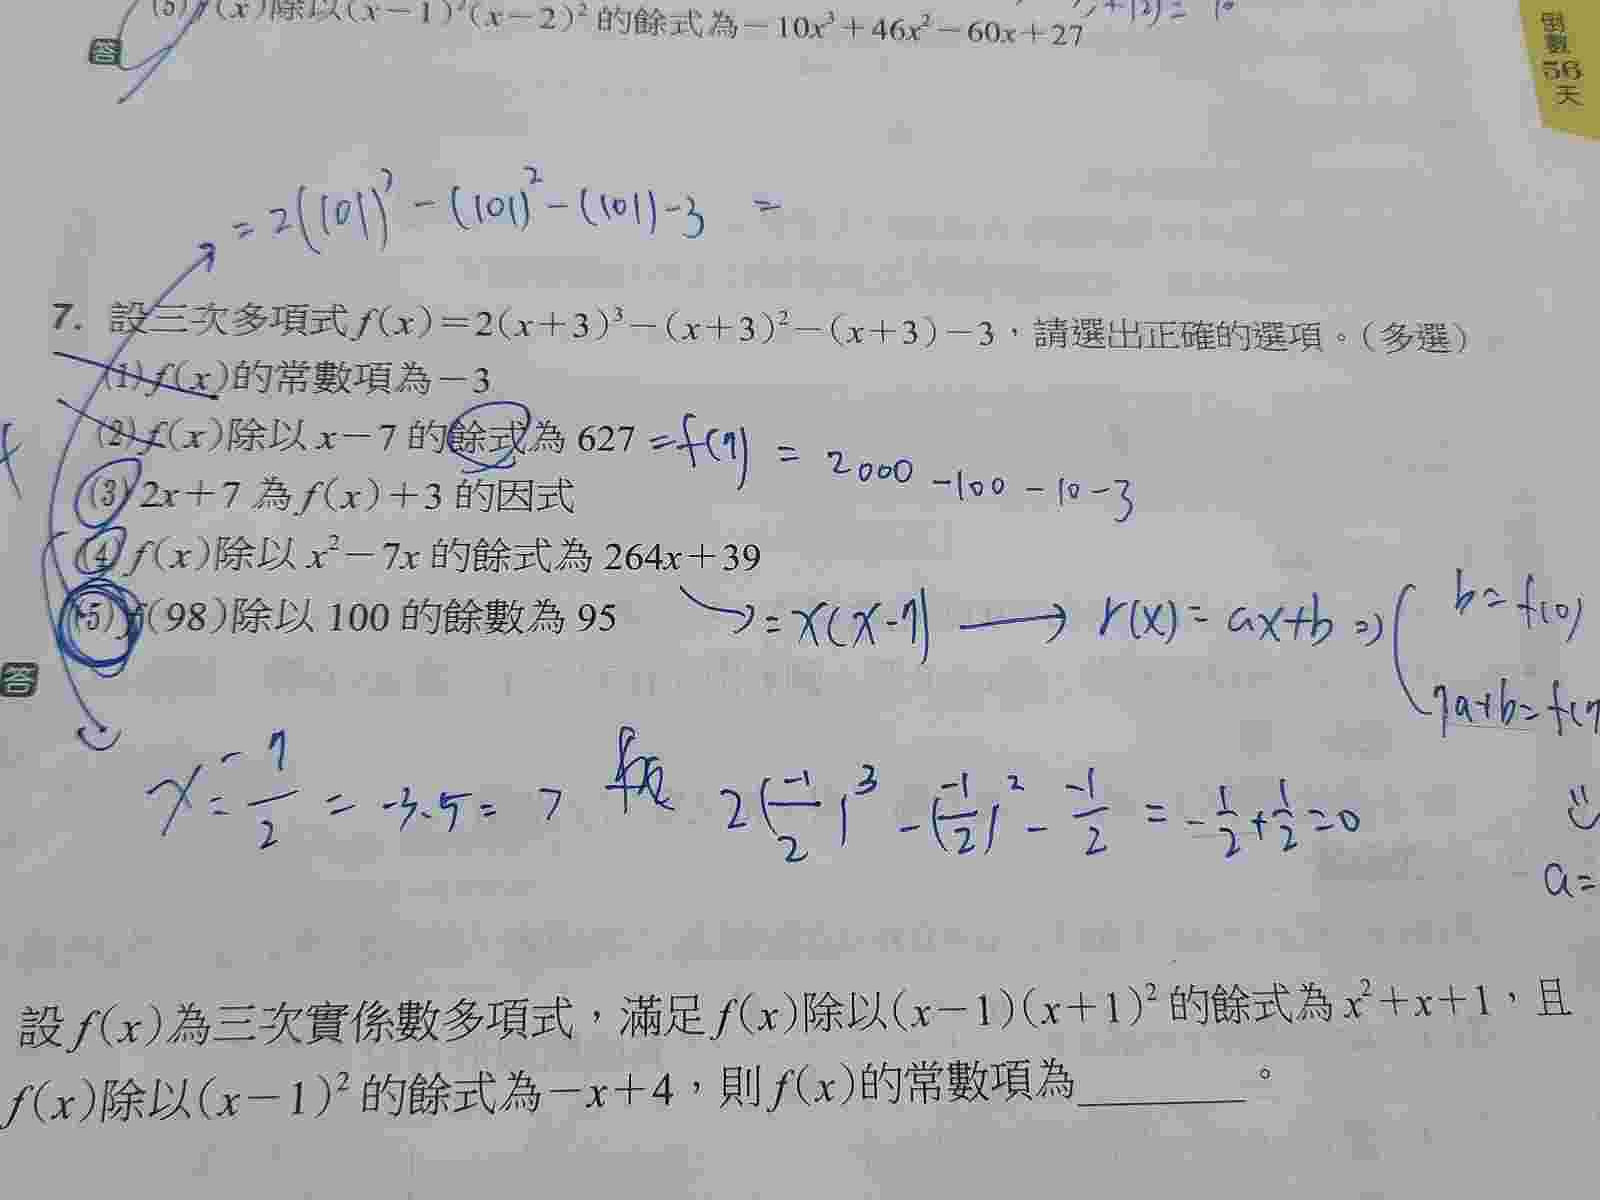 除以(x-1)²(x-2)²的餘式為-10x³+46x²-60x+27
倒數56天
答
=2(101)³-(101)²-(101)-3 =
7. 設三次多項式f(x)=2(x+3)³-(x+3)²-(x+3)-3,請選出正確的選項。(多選)
(1)f(x)的常數項為-3
(2)f(x)除以x-7的餘式為627 =f(7) = 2000-100-10-3
(3)2x+7為f(x)+3的因式
(4)f(x)除以x²-7x的餘式為264x+39
(5)f(98)除以100的餘數為95
=x(x-7) → r(x)=ax+b ⇒ b=f(0)
7a+b=f(7
答
x=-7/2=-3.5=
2(-1/2)³-(-1/2)²--1/2=-1/2+1/2=0
a=
設f(x)為三次實係數多項式,滿足f(x)除以(x-1)(x+1)²的餘式為x²+x+1,且
f(x)除以(x-1)²的餘式為-x+4,則f(x)的常數項為________。